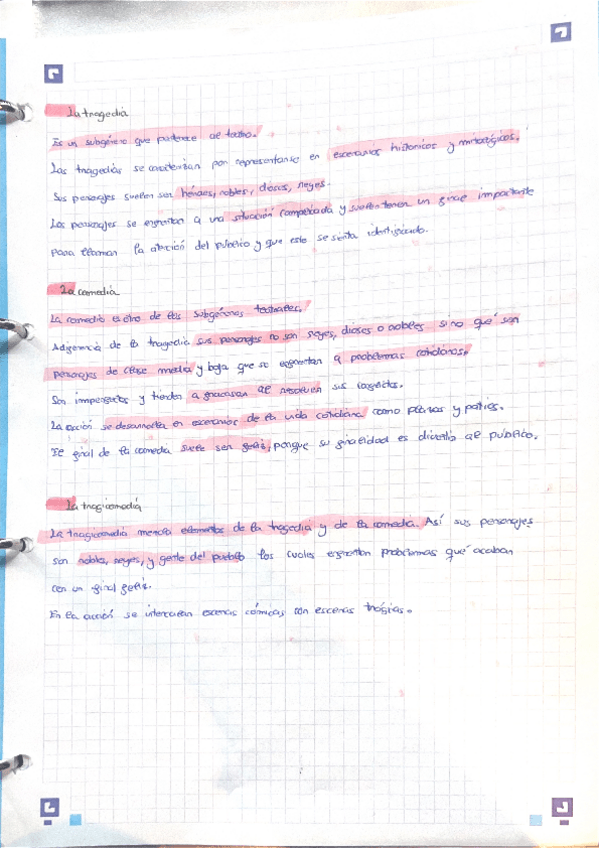 La tragedia
Es un subgénero que pertenece al teatro.
Las tragedias se caracterizan por representarse en escenarios históricos y mitológicos.
Sus personajes suelen ser héroes, nobles, dioses, reyes.
Los personajes se enfrentan a una situación complicada y suelen tener un final impactante
para llamar la atención del público y que este se sienta identificado.
La comedia
La comedia es otro de los subgéneros teatrales.
A diferencia de la tragedia sus personajes no son reyes, dioses o nobles sino que son
personajes de clase media y baja que se enfrentan a problemas cotidianos.
Son imperfectos y tienden a fracasar al resolver sus conflictos.
La acción se desarrolla en escenarios de la vida cotidiana como plazas y patios.
El final de la comedia suele ser feliz, porque su finalidad es divertir al público.
La tragicomedia
La tragicomedia mezcla elementos de la tragedia y de la comedia. Así sus personajes
son nobles, reyes, y gente del pueblo los cuales enfrentan problemas que acaban
con un final feliz.
En la acción se intercalan escenas cómicas con escenas trágicas.